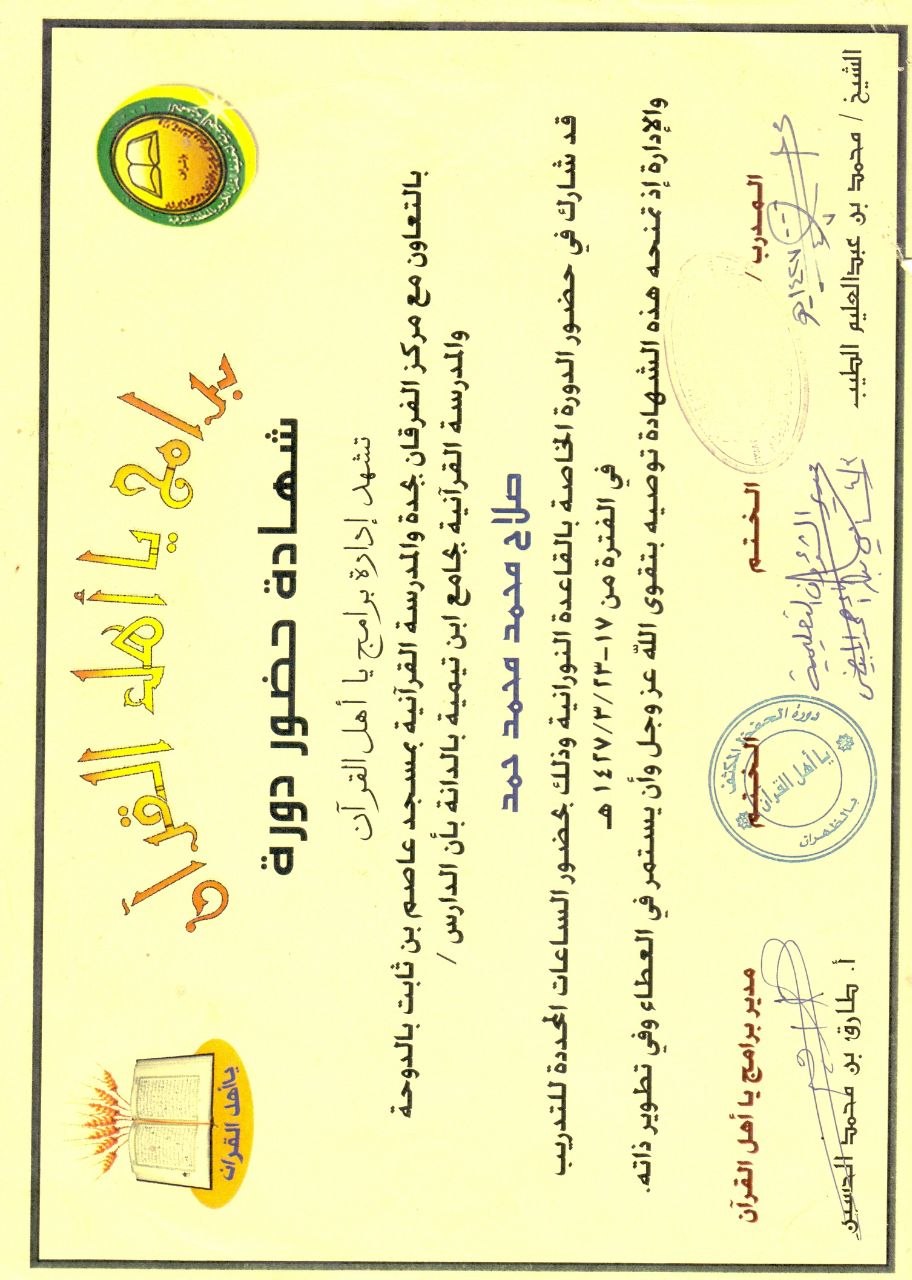 برامج يا أهل القرآن
ياأهل القرآن
شهادة حضور دورة
تشهد إدارة برامج يا أهل القرآن
بالتعاون مع مركز الفرقان بجدة والمدرسة القرآنية بمسجد عاصم بن ثابت بالدوحة
والمدرسة القرآنية بجامع ابن تيمية بالدانة بأن الدارس /
صلاح محمد محمد حمد
قد شارك في حضور الدورة الخاصة بالقاعدة النورانية وذلك بحضور الساعات المحددة للتدريب
في الفترة من ١٧-١٤٢٧/٣/٢٣ هـ
والإدارة إذ تمنحه هذه الشهادة توصيه بتقوى الله عز وجل وأن يستمر في العطاء وفي تطوير ذاته.
المدرب /
الختم
الختم
مدير برامج يا أهل القرآن
دورة الحفظ المكثف
يا أهل القرآن
بالظهران
الشيخ / محمد بن عبدالعليم الطيب
أ. طارق بن محمد الحسين